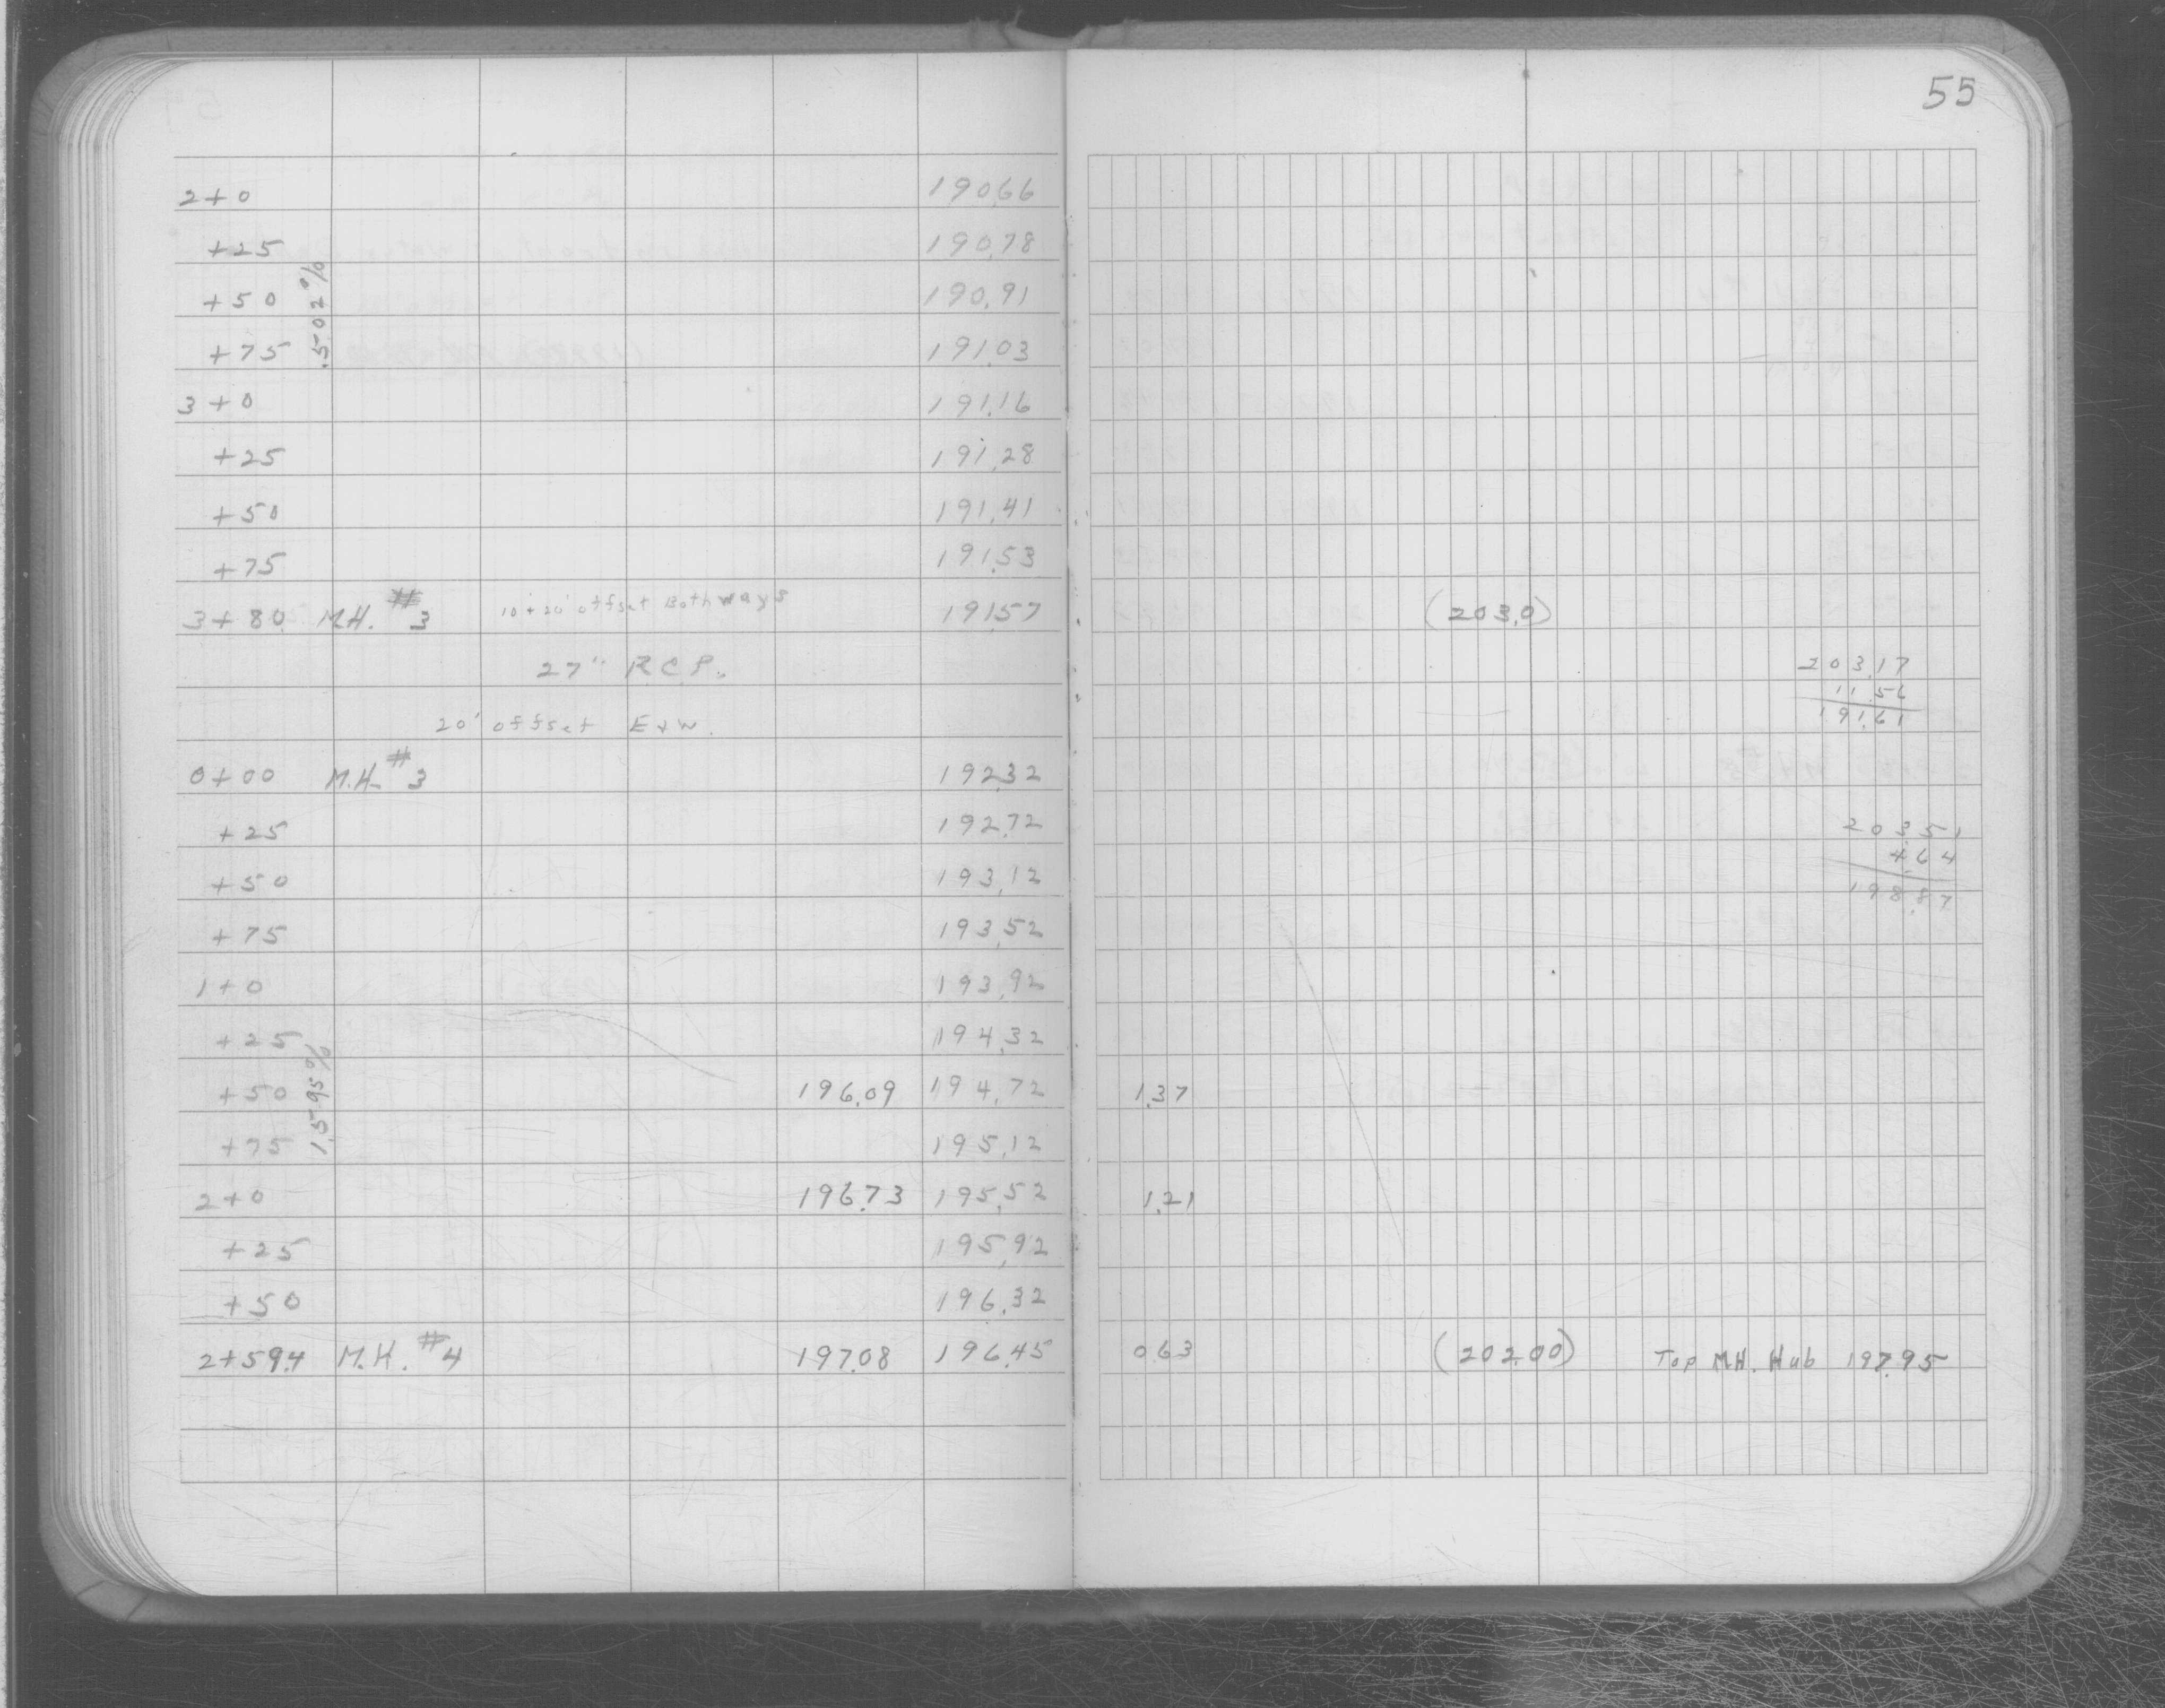 55
2+0 190.66
+25 190.78
+50 190.91
.502%
+75 191.03
3+0 191.16
+25 191.28
+50 191.41
+75 191.53
3+80 M.H. #3 10+20' offset Both ways 191.57 (203.0)
27" R.C.P. 203.17
11.56
20' offset E+W. 191.61
0+00 M.H. #3 192.32
+25 192.72 203.51
4.64
+50 193.12 198.87
+75 193.52
1+0 193.92
+25 194.32
1.595%
+50 196.09 194.72 1.37
+75 195.12
2+0 196.73 195.52 1.21
+25 195.92
+50 196.32
2+59.4 M.H. #4 197.08 196.45 0.63 (202.00) Top M.H. Hub 197.95